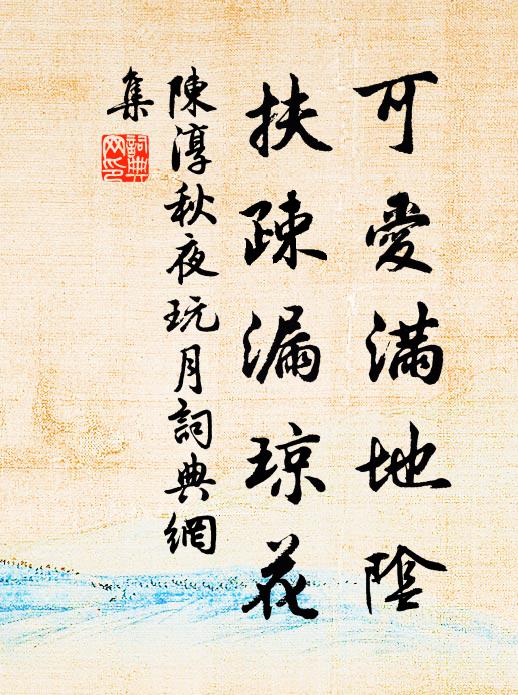 可愛滿地陰
扶疎漏琼花
陳淳秋夜玩月詞典網
集
詞典网印